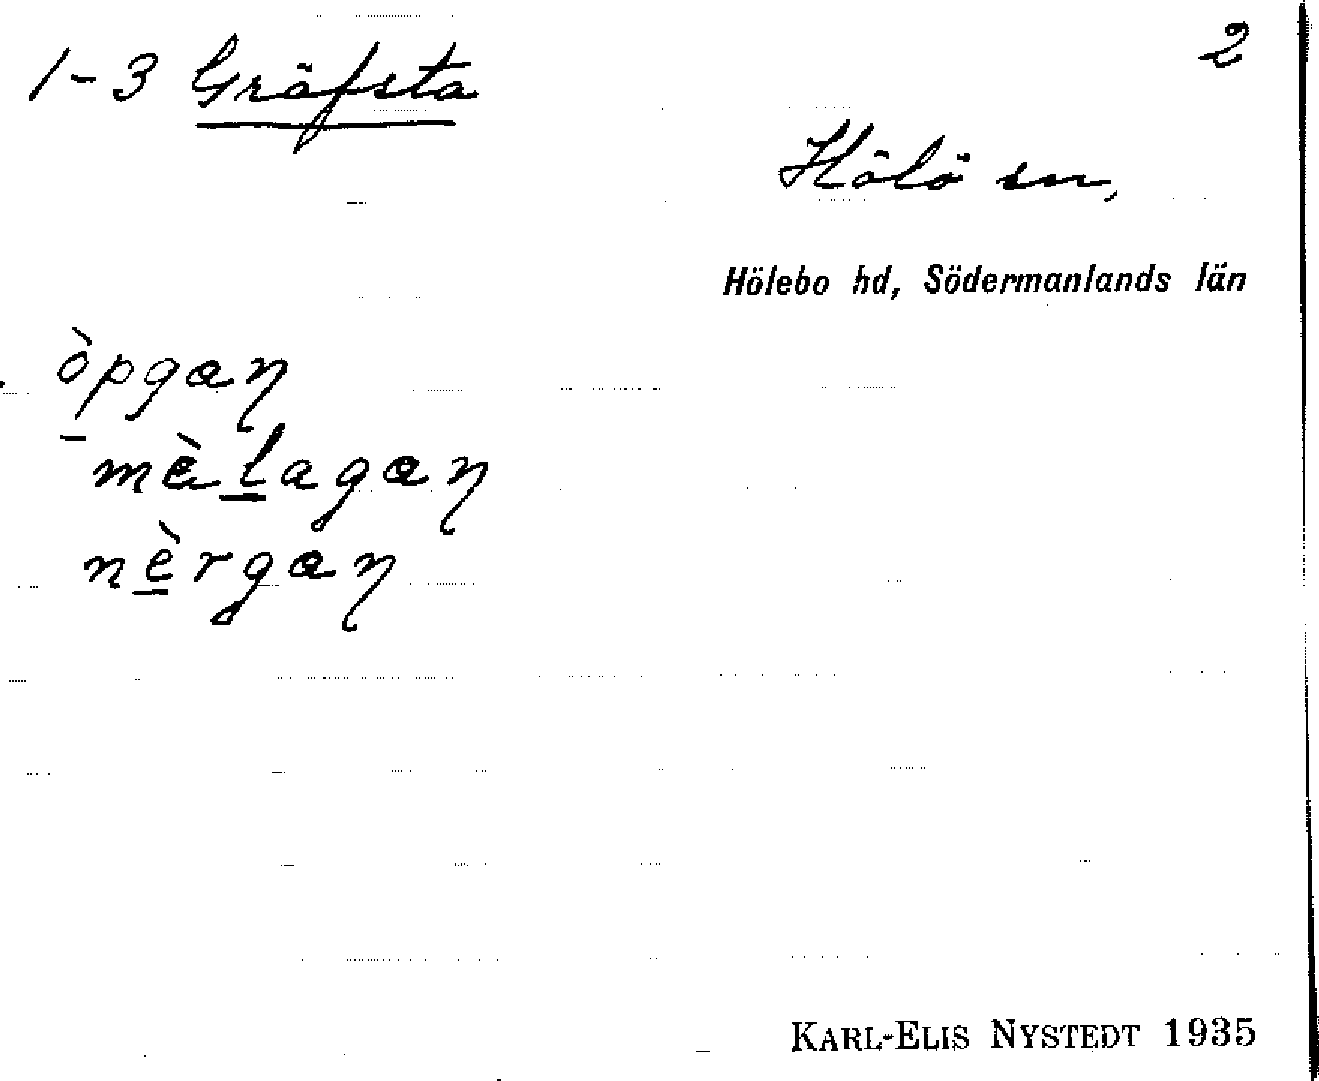 1-3 Gräfsta
2
Hölö sn,
Hölebo hd, Södermanlands län
òpgaŋ
mèlagaŋ
nèrgaŋ
KARL-ELIS NYSTEDT 1935